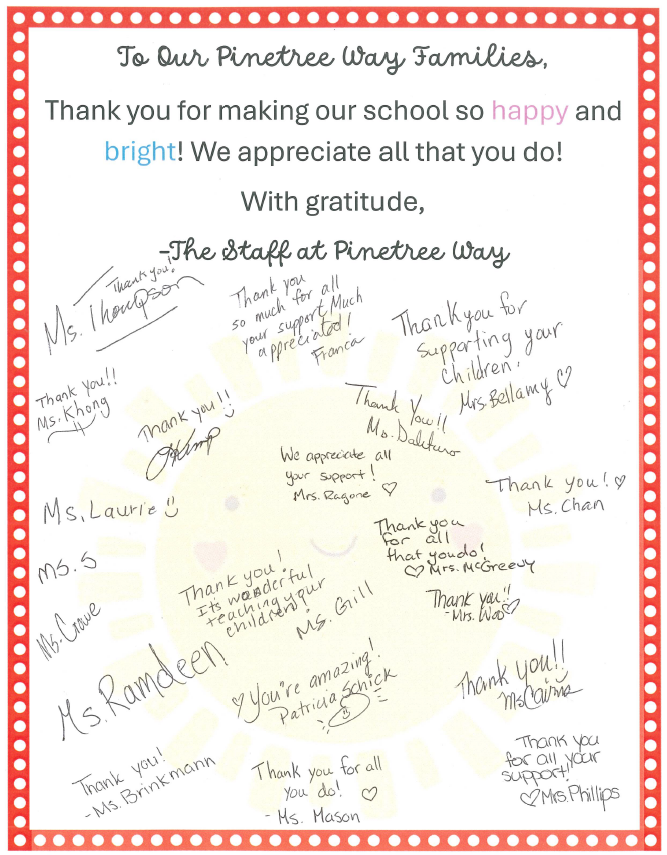 To Our Pinetree Way Families,
Thank you for making our school so happy and
bright! We appreciate all that you do!
With gratitude,
-The Staff at Pinetree Way
Thank you!
Ms. Thompson
Thank you
so much for all
your support! Much
appreciated!
Franca
Thank you for
supporting your
children.
Mrs. Bellamy ♡
Thank you!!
Ms. Khong
Thank you!!
Thank You!!
We appreciate all
your support!
Mrs. Ragone ♡
Thank you! ♡
Ms. Chan
Ms. Laurie
Thank you
for all
that you do!
♡ Mrs. McGreevy
Ms. S
Thank you!
It's wonderful
teaching your
children!
Ms. Gill
Thank you!!
-Mrs. Woo ♡
Ms. Crowe
Ms. Ramdeen
♡ You're amazing!
Patricia Schick
Thank you!!
Ms Cairns
Thank you!
-Ms. Brinkmann
Thank you for all
you do! ♡
- Ms. Mason
Thank you
for all your
support!
♡ Mrs. Phillips